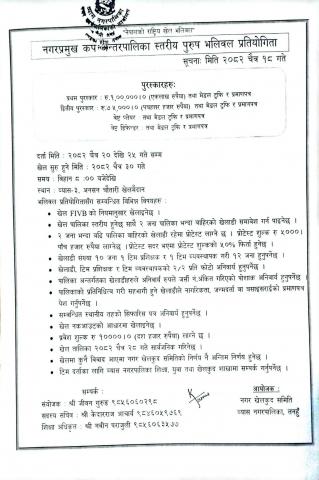 "नेपालको राष्ट्रिय खेल भलिबल"
नगरप्रमुख कप अन्तरपालिका स्तरीय पुरुष भलिवल प्रतियोगिता
सूचनाः मिति २०८२ चैत्र १८ गते
पुरस्कारहरुः
प्रथम पुरस्कार : रु.१,००,०००।० (एकलाख रुपैया) तथा मेडल ट्रफि र प्रमाणपत्र
द्वितीय पुरस्कार : रु.७५,०००।० (पचहत्तर हजार रुपैया) तथा मेडल ट्रफि र प्रमाणपत्र
बेष्ट प्लेयर : तथा मेडल ट्रफि र प्रमाणपत्र
बेष्ट डिफेन्डर : तथा मेडल ट्रफि र प्रमाणपत्र
दर्ता मिति : २०८२ चैत्र २० देखि २५ गते सम्म
खेल सुरु हुने मिति : २०८२ चैत्र ३० गते
समय : बिहान ८ :०० बजेदेखि
स्थान : व्यास-३, खेलमैदान
भलिवल प्रतियोगितासँग सम्बन्धित विविध विषयहरु :
• खेल FIVB को नियमानुसार खेलाइनेछ ।
• खेल पालिका स्तरीय हुनेछ साथै २ जना पालिका भन्दा बाहिरको खेलाडी समावेश गर्न पाइनेछ ।
• २ जना भन्दा बढि पालिका बाहिरको खेलाडी रहेमा प्रोटेस्ट लाग्ने छ । प्रोटेस्ट शुल्क रु ५०००
पाँच हजार रुपैया लाग्नेछ । प्रोटेस्ट सदर भएमा प्रोटेस्ट शुल्कको ५०% फिर्ता हुनेछ ।
• खेलाडी संख्या १० जना १ टिम प्रशिक्षक र १ टिम व्यवस्थापक गरी १२ जना हुनुपर्नेछ ।
• खेलाडी, टिम प्रशिक्षक र टिम व्यवस्थापकको २/२ प्रति फोटो अनिवार्य हुनुपर्नेछ ।
• पालिका अन्तर्गतका खेलाडीहरुले अनिवार्य रुपले जर्सी नं.अंकित गरिएको पोशाक अनिवार्य हुनुपर्नेछ ।
• पालिकाको प्रतिनिधित्व गरी सहभागी हुने खेलाडीले नागरिकता, जन्मदर्ता वा बसाइसराईको प्रमाणपत्र
पेश गर्नुपर्नेछ ।
• सम्बन्धित स्थानीय तहको सिफारिस पत्र अनिवार्य हुनुपर्नेछ ।
• खेल नकआउटको आधारमा खेलाइनेछ ।
• प्रवेश शुल्क रु १००००।० (दश हजार रुपैया) लाग्ने छ ।
• खेल तालिका २०८२ चैत्र २८ गते सार्वजनिक गरिनेछ ।
• खेलमा कुनै विवाद आएमा नगर खेलकुद समितिको निर्णय नै अन्तिम निर्णय हुनेछ ।
• टिम दर्ताका लागि व्यास नगरपालिका शिक्षा, युवा तथा खेलकुद शाखामा सम्पर्क गर्नुपर्नेछ ।
सम्पर्क :
संयोजक : श्री जीवन गुरुङ ९८५६०६०२९८
सदस्य सचिव : श्री केदारराज आचार्य ९८५६०५९७६९
शिक्षा अधिकृत : श्री नवीन पराजुली ९८५६०६३५७७
आयोजक :
नगर खेलकुद समिति
व्यास नगरपालिका, तनहुँ